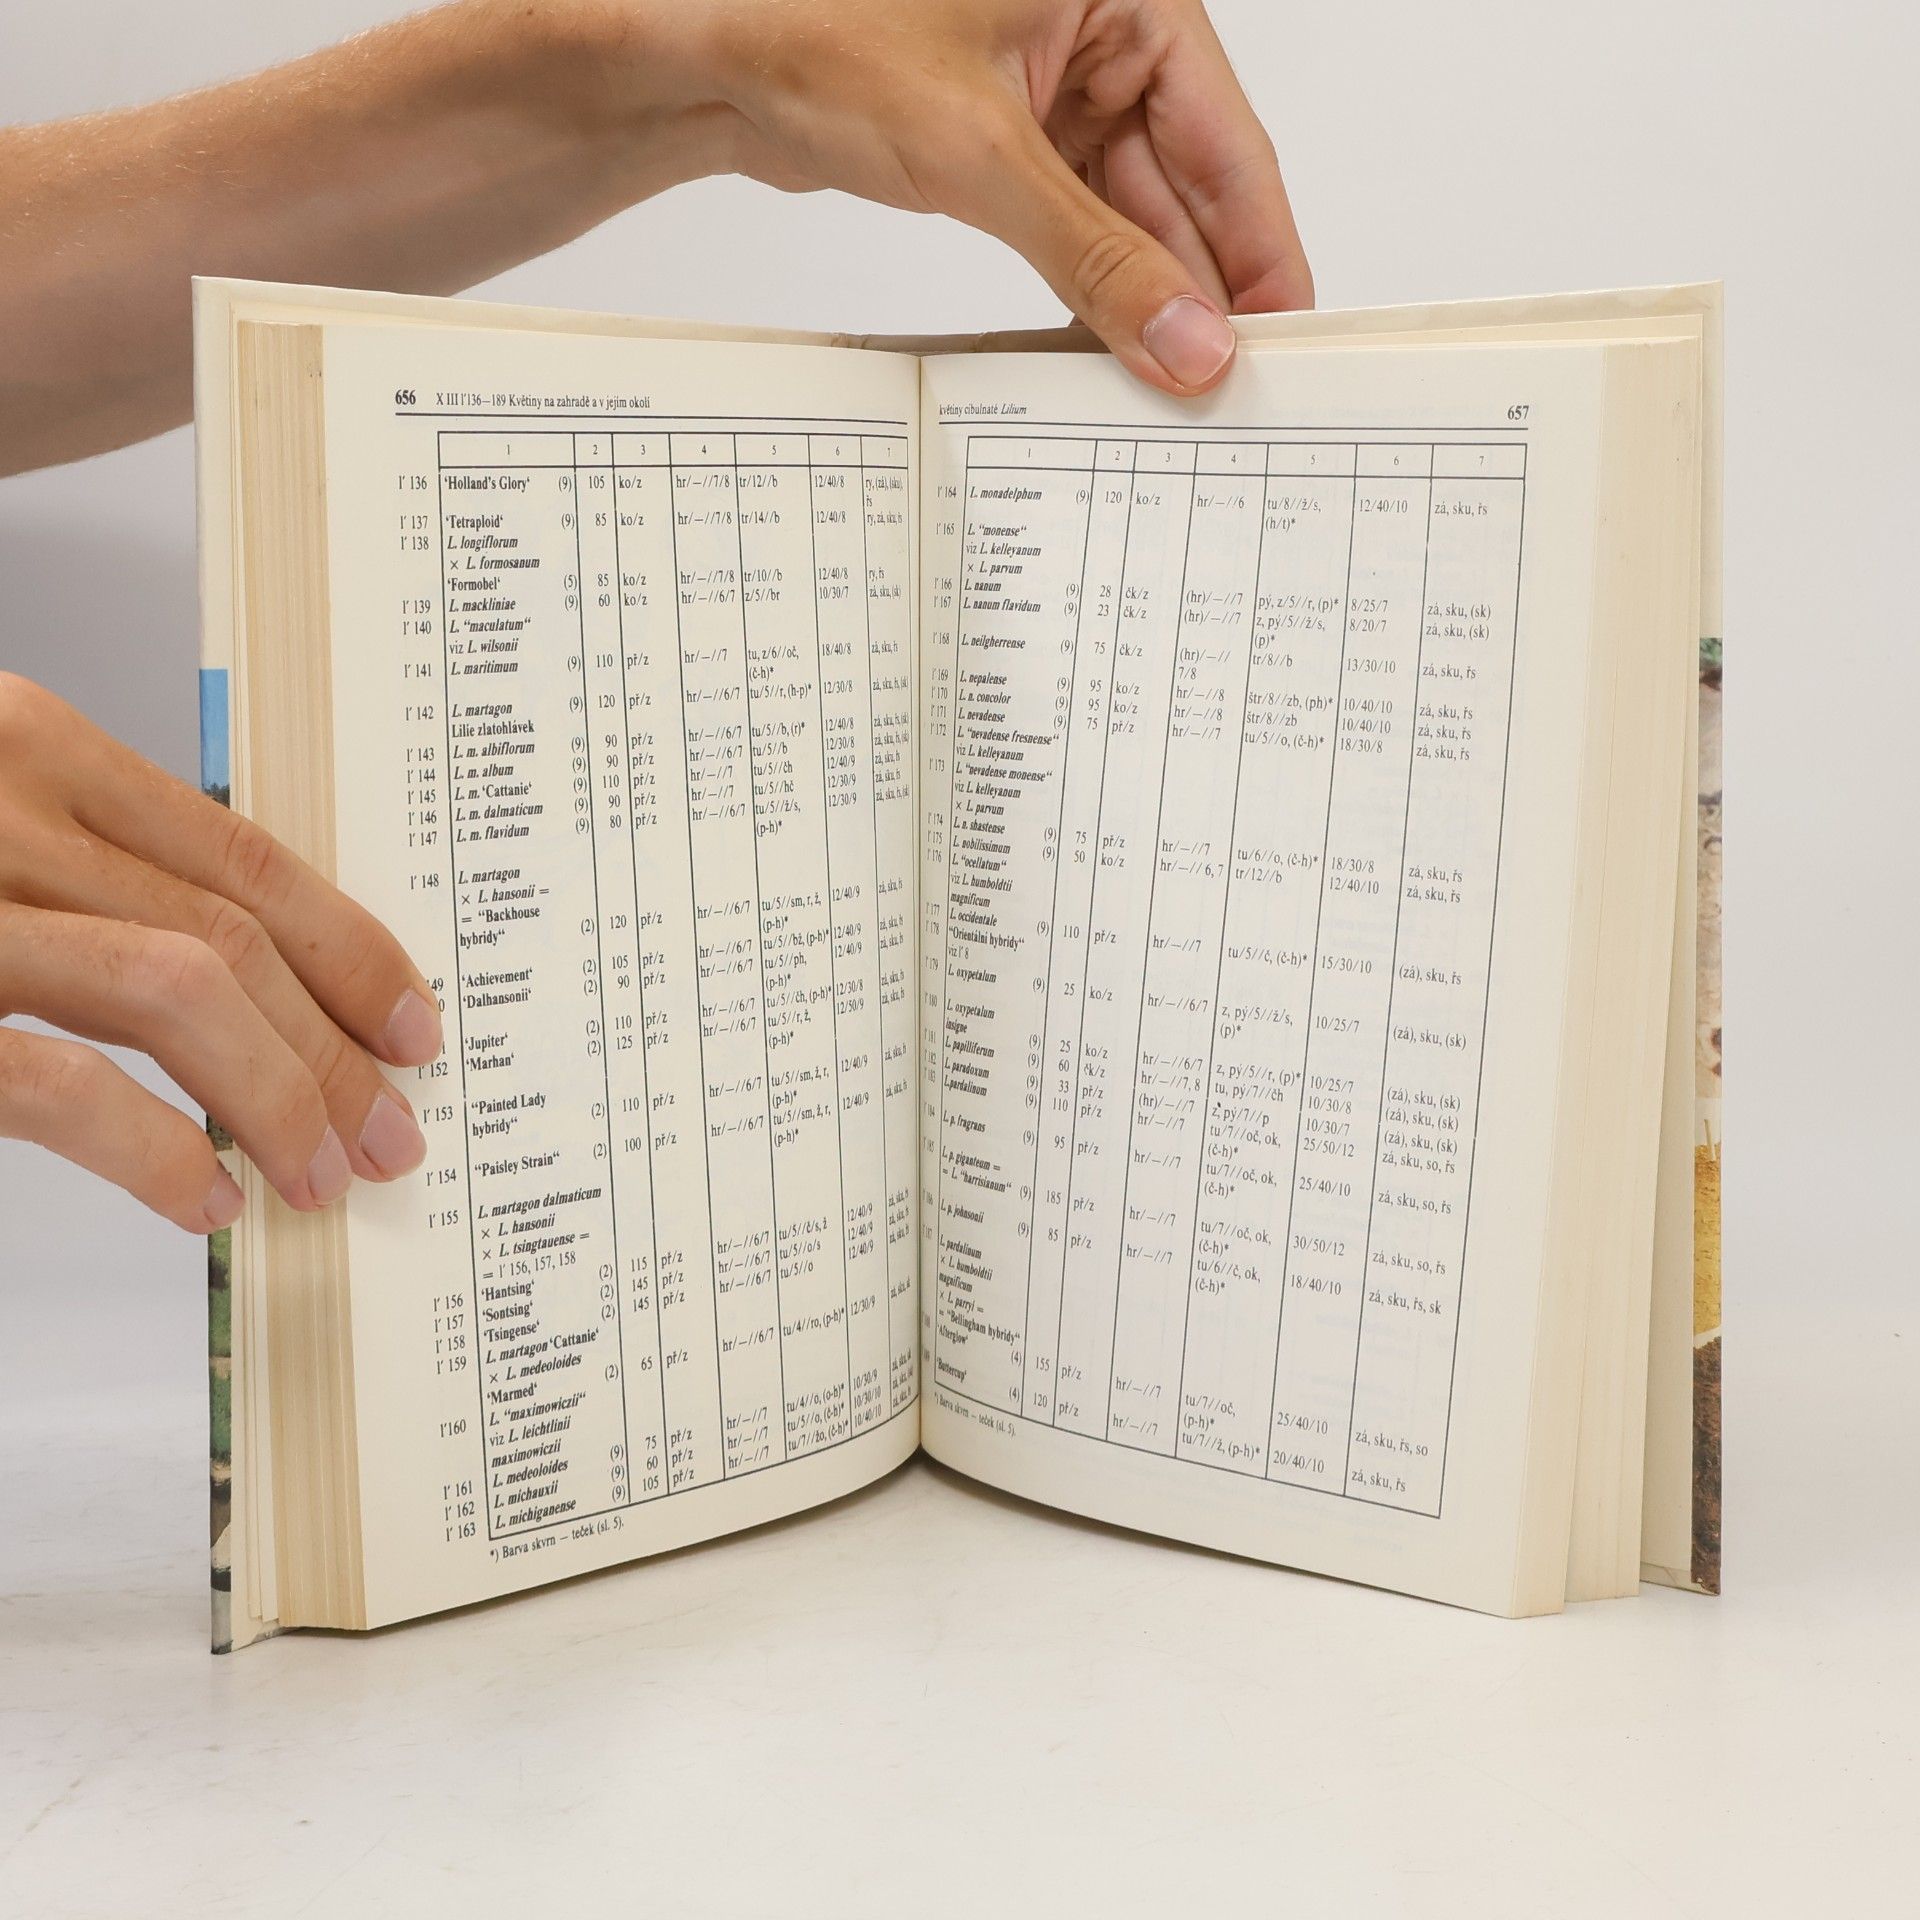 656 X III ľ136—189 Květiny na zahradě a v jejím okolí
1 2 3 4 5 6 7
ľ 136 ‘Holland's Glory‘ (9) 105 ko/z hr/—//7/8 tr/12//b 12/40/8 ry, (zá), (sku),
řs
ľ 137 ‘Tetraploid‘ (9) 85 ko/z hr/—//7/8 tr/14//b 12/40/8 ry, zá, sku, řs
ľ 138 L. longiflorum
× L. formosanum
‘Formobel‘ (5) 85 ko/z hr/—//7/8 tr/10//b 12/40/8 ry, řs
ľ 139 L. mackliniae (9) 60 ko/z hr/—//6/7 z/5//br 10/30/7 zá, sku, (sk)
ľ 140 L. “maculatum“
viz L. wilsonii
ľ 141 L. maritimum (9) 110 př/z hr/—//7 tu, z/6//oč, 18/40/8 zá, sku, řs
(č-h)*
ľ 142 L. martagon (9) 120 př/z hr/—//6/7 tu/5//r, (h-p)* 12/30/8 zá, sku, řs, (sk)
Lilie zlatohlávek
ľ 143 L. m. albiflorum (9) 90 př/z hr/—//6/7 tu/5//b, (r)* 12/40/8 zá, sku, řs, (sk)
ľ 144 L. m. album (9) 90 př/z hr/—//6/7 tu/5//b 12/30/8 zá, sku, řs, (sk)
ľ 145 L. m. ‘Cattanie‘ (9) 110 př/z hr/—//7 tu/5//čh 12/40/9 zá, sku, řs
ľ 146 L. m. dalmaticum (9) 90 př/z hr/—//7 tu/5//hč 12/30/9 zá, sku, řs
ľ 147 L. m. flavidum (9) 80 př/z hr/—//6/7 tu/5//ž/s, 12/30/9 zá, sku, řs, (sk)
(p-h)*
ľ 148 L. martagon
× L. hansonii =
= “Backhouse
hybridy“ (2) 120 př/z hr/—//6/7 tu/5//sm, r, ž, 12/40/9 zá, sku, řs
(p-h)*
49 ‘Achievement‘ (2) 105 př/z hr/—//6/7 tu/5//bž, (p-h)* 12/40/9 zá, sku, řs
0 ‘Dalhansonii‘ (2) 90 př/z hr/—//6/7 tu/5//ph, 12/40/9 zá, sku, řs
(p-h)*
1 ‘Jupiter‘ (2) 110 př/z hr/—//6/7 tu/5//čh, (p-h)* 12/30/8 zá, sku, řs
ľ 152 ‘Marhan‘ (2) 125 př/z hr/—//6/7 tu/5//r, ž, 12/50/9 zá, sku, řs
(p-h)*
ľ 153 “Painted Lady
hybridy“ (2) 110 př/z hr/—//6/7 tu/5//sm, ž, r, 12/40/9 zá, sku, řs
(p-h)*
ľ 154 “Paisley Strain“ (2) 100 př/z hr/—//6/7 tu/5//sm, ž, r, 12/40/9 zá, sku, řs
(p-h)*
ľ 155 L. martagon dalmaticum
× L. hansonii
× L. tsingtauense =
= ľ 156, 157, 158
ľ 156 ‘Hantsing‘ (2) 115 př/z hr/—//6/7 tu/5//č/s, ž 12/40/9 zá, sku, řs
ľ 157 ‘Sontsing‘ (2) 145 př/z hr/—//6/7 tu/5//o/s 12/40/9 zá, sku, řs
ľ 158 ‘Tsingense‘ (2) 145 př/z hr/—//6/7 tu/5//o 12/40/9 zá, sku, řs
ľ 159 L. martagon ‘Cattanie‘
× L. medeoloides
‘Marmed‘ (2) 65 př/z hr/—//6/7 tu/4//ro, (p-h)* 12/30/9 zá, sku, sk
ľ160 L. “maximowiczii“
viz L. leichtlinii
maximowiczii
ľ 161 L. medeoloides (9) 75 př/z hr/—//7 tu/4//o, (o-h)* 10/30/9 zá, sku, sk
ľ 162 L. michauxii (9) 60 př/z hr/—//7 tu/5//o, (č-h)* 10/30/10 zá, sku, (sk)
ľ 163 L. michiganense (9) 105 př/z hr/—//7 tu/7//žo, (č-h)* 10/40/10 zá, sku, řs
*) Barva skvrn — teček (sl. 5).
květiny cibulnaté Lilium 657
1 2 3 4 5 6 7
ľ 164 L. monadelphum (9) 120 ko/z hr/—//6 tu/8//ž/s, 12/40/10 zá, sku, řs
(h/t)*
ľ 165 L. “monense“
viz L. kelleyanum
× L. parvum
ľ 166 L. nanum (9) 28 čk/z (hr)/—//7 pý, z/5//r, (p)* 8/25/7 zá, sku, (sk)
ľ 167 L. nanum flavidum (9) 23 čk/z (hr)/—//7 z, pý/5//ž/s, 8/20/7 zá, sku, (sk)
(p)*
ľ 168 L. neilgherrense (9) 75 čk/z (hr)/—// tr/8//b 13/30/10 zá, sku, řs
7/8
ľ 169 L. nepalense (9) 95 ko/z hr/—//8 štr/8//zb, (ph)* 10/40/10 zá, sku, řs
ľ 170 L. n. concolor (9) 95 ko/z hr/—//8 štr/8//zb 10/40/10 zá, sku, řs
ľ 171 L. nevadense (9) 75 př/z hr/—//7 tu/5//o, (č-h)* 18/30/8 zá, sku, řs
ľ 172 L. “nevadense fresnense“
viz L. kelleyanum
ľ 173 L. “nevadense monense“
viz L. kelleyanum
× L. parvum
ľ 174 L. n. shastense (9) 75 př/z hr/—//7 tu/6//o, (č-h)* 18/30/8 zá, sku, řs
ľ 175 L. nobilissimum (9) 50 ko/z hr/—// 6, 7 tr/12//b 12/40/10 zá, sku, řs
ľ 176 L. “ocellatum“
viz L. humboldtii
magnificum
ľ 177 L. occidentale (9) 110 př/z hr/—//7 tu/5//č, (č-h)* 15/30/10 (zá), sku, řs
ľ 178 “Orientální hybridy“
viz ľ 8
ľ 179 L. oxypetalum (9) 25 ko/z hr/—//6/7 z, pý/5//ž/s, 10/25/7 (zá), sku, (sk)
(p)*
ľ 180 L. oxypetalum
insigne (9) 25 ko/z hr/—//6/7 z, pý/5//r, (p)* 10/25/7 (zá), sku, (sk)
ľ 181 L. papilliferum (9) 60 čk/z hr/—//7, 8 tu, pý/7//čh 10/30/8 (zá), sku, (sk)
ľ 182 L. paradoxum (9) 33 př/z (hr)/—//7 z, pý/7//p 10/30/7 (zá), sku, (sk)
ľ 183 L. pardalinum (9) 110 př/z hr/—//7 tu/7//oč, ok, 25/50/12 zá, sku, so, řs
(č-h)*
ľ 184 L. p. fragrans (9) 95 př/z hr/—//7 tu/7//oč, ok, 25/40/10 zá, sku, so, řs
(č-h)*
ľ 185 L. p. giganteum =
= L. “harrisianum“ (9) 185 př/z hr/—//7 tu/7//oč, ok, 30/50/12 zá, sku, so, řs
(č-h)*
ľ 186 L. p. johnsonii (9) 85 př/z hr/—//7 tu/6//č, ok, 18/40/10 zá, sku, řs, sk
(č-h)*
ľ 187 L. pardalinum
× L. humboldtii
magnificum
× L. parryi =
= “Bellingham hybridy“
‘Afterglow‘ (4) 155 př/z hr/—//7 tu/7//oč, 25/40/10 zá, sku, řs, so
(p-h)*
‘Buttercup‘ (4) 120 př/z hr/—//7 tu/7//ž, (p-h)* 20/40/10 zá, sku, řs
*) Barva skvrn — teček (sl. 5).